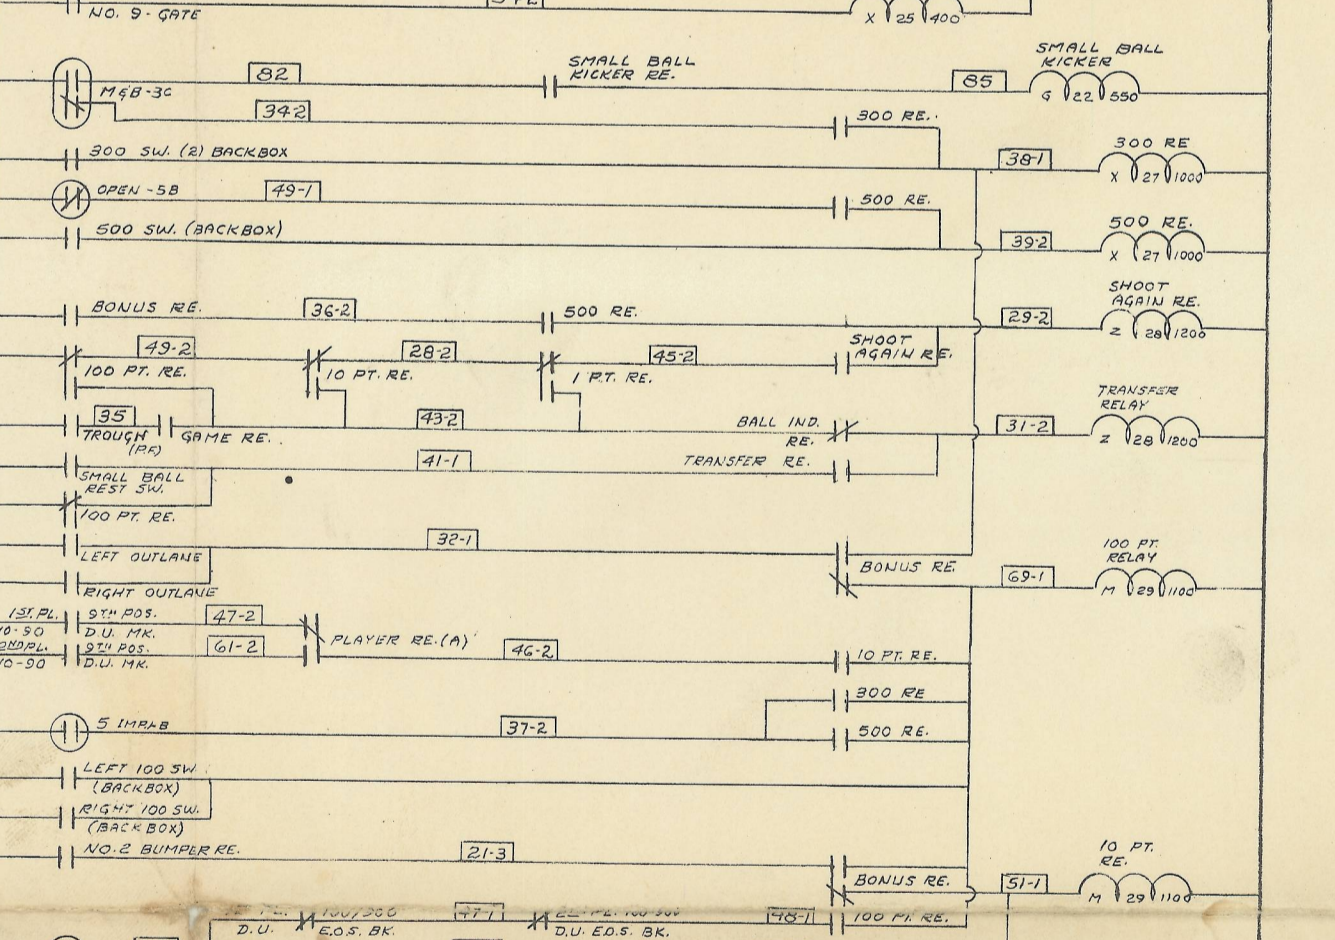 NO. 9 - GATE
X 25 400
SMALL BALL
KICKER
SMALL BALL
KICKER RE.
82
85
G 22 550
M&B-3C
34-2
300 RE.
300 SW. (2) BACKBOX
38-1
300 RE
X 27 1000
OPEN - 5B
49-1
500 RE.
500 SW. (BACKBOX)
39-2
500 RE.
X 27 1000
BONUS RE.
36-2
500 RE.
29-2
SHOOT
AGAIN RE.
Z 28 1200
49-2
28-2
45-2
SHOOT
AGAIN RE.
100 PT. RE.
10 PT. RE.
1 PT. RE.
35
TROUGH
(P.F.)
GAME RE.
43-2
BALL IND.
RE.
31-2
TRANSFER
RELAY
Z 28 1200
41-1
TRANSFER RE.
SMALL BALL
REST SW.
100 PT. RE.
32-1
LEFT OUTLANE
RIGHT OUTLANE
BONUS RE.
69-1
100 PT.
RELAY
M 29 1100
1ST. PL.
10-90
9TH POS.
D.U. MK.
47-2
2ND PL.
10-90
9TH POS.
D.U. MK.
61-2
PLAYER RE. (A)
46-2
10 PT. RE.
300 RE
5 IMP.
37-2
500 RE.
LEFT 100 SW.
(BACKBOX)
RIGHT 100 SW.
(BACKBOX)
NO. 2 BUMPER RE.
21-3
BONUS RE.
51-1
10 PT.
RE.
M 29 1100
48-1
100 PT. RE.
D.U.
E.O.S. BK.
D.U. E.O.S. BK.